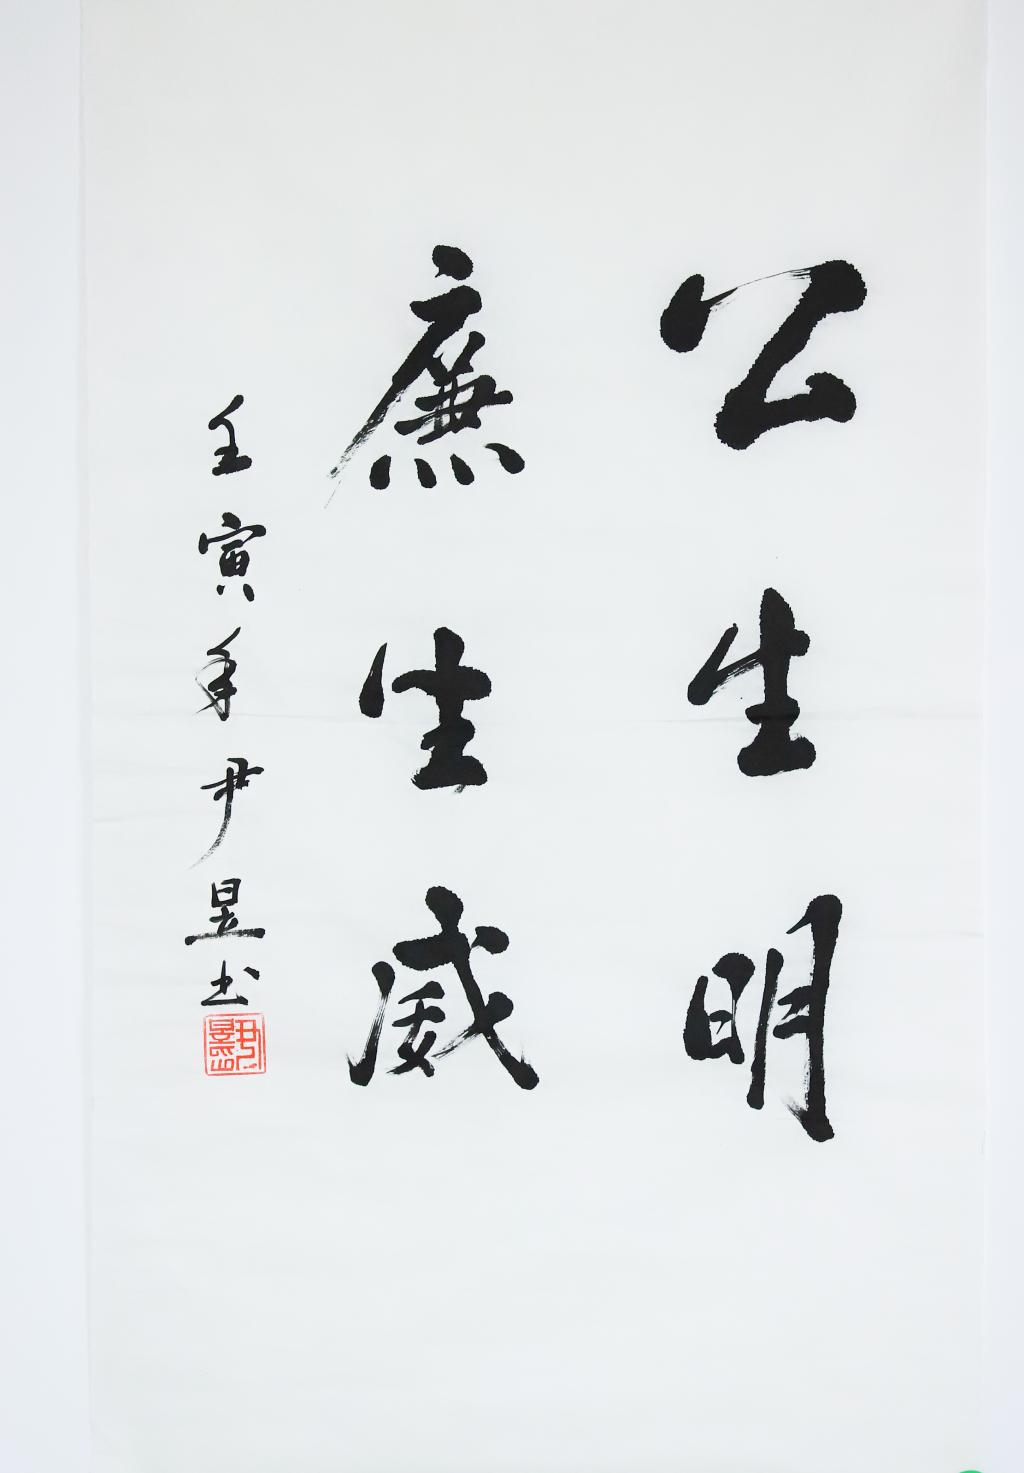 公生明
廉生威
壬寅年尹昱书